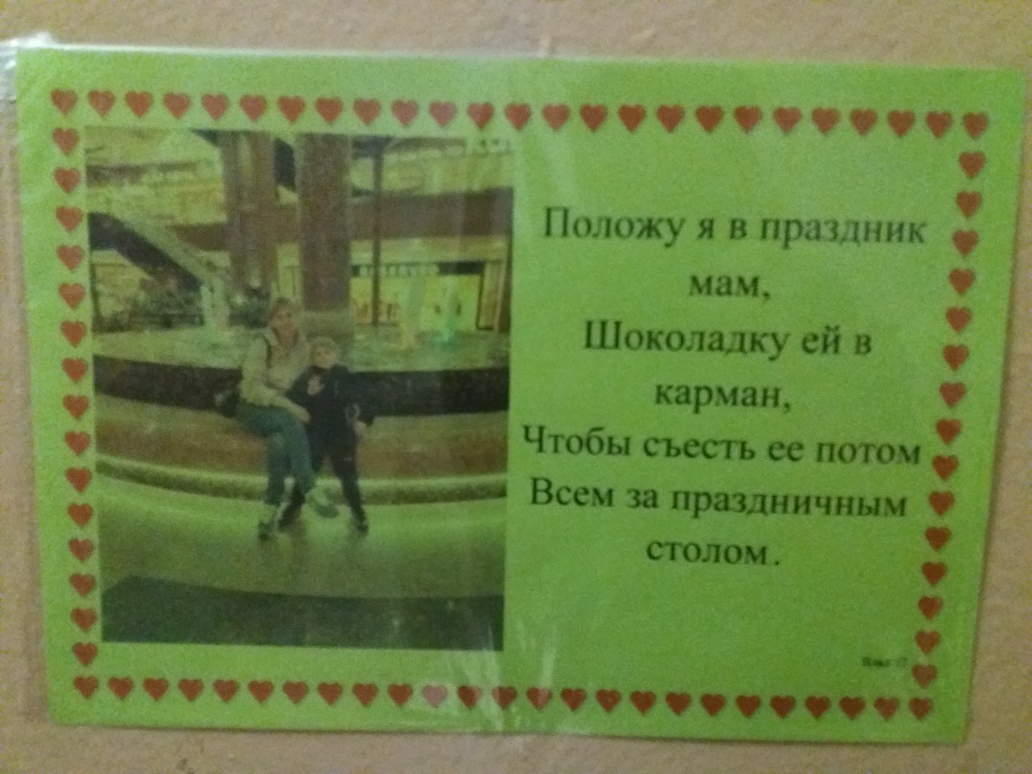 Положу я в праздник
мам,
Шоколадку ей в
карман,
Чтобы съесть ее потом
Всем за праздничным
столом.